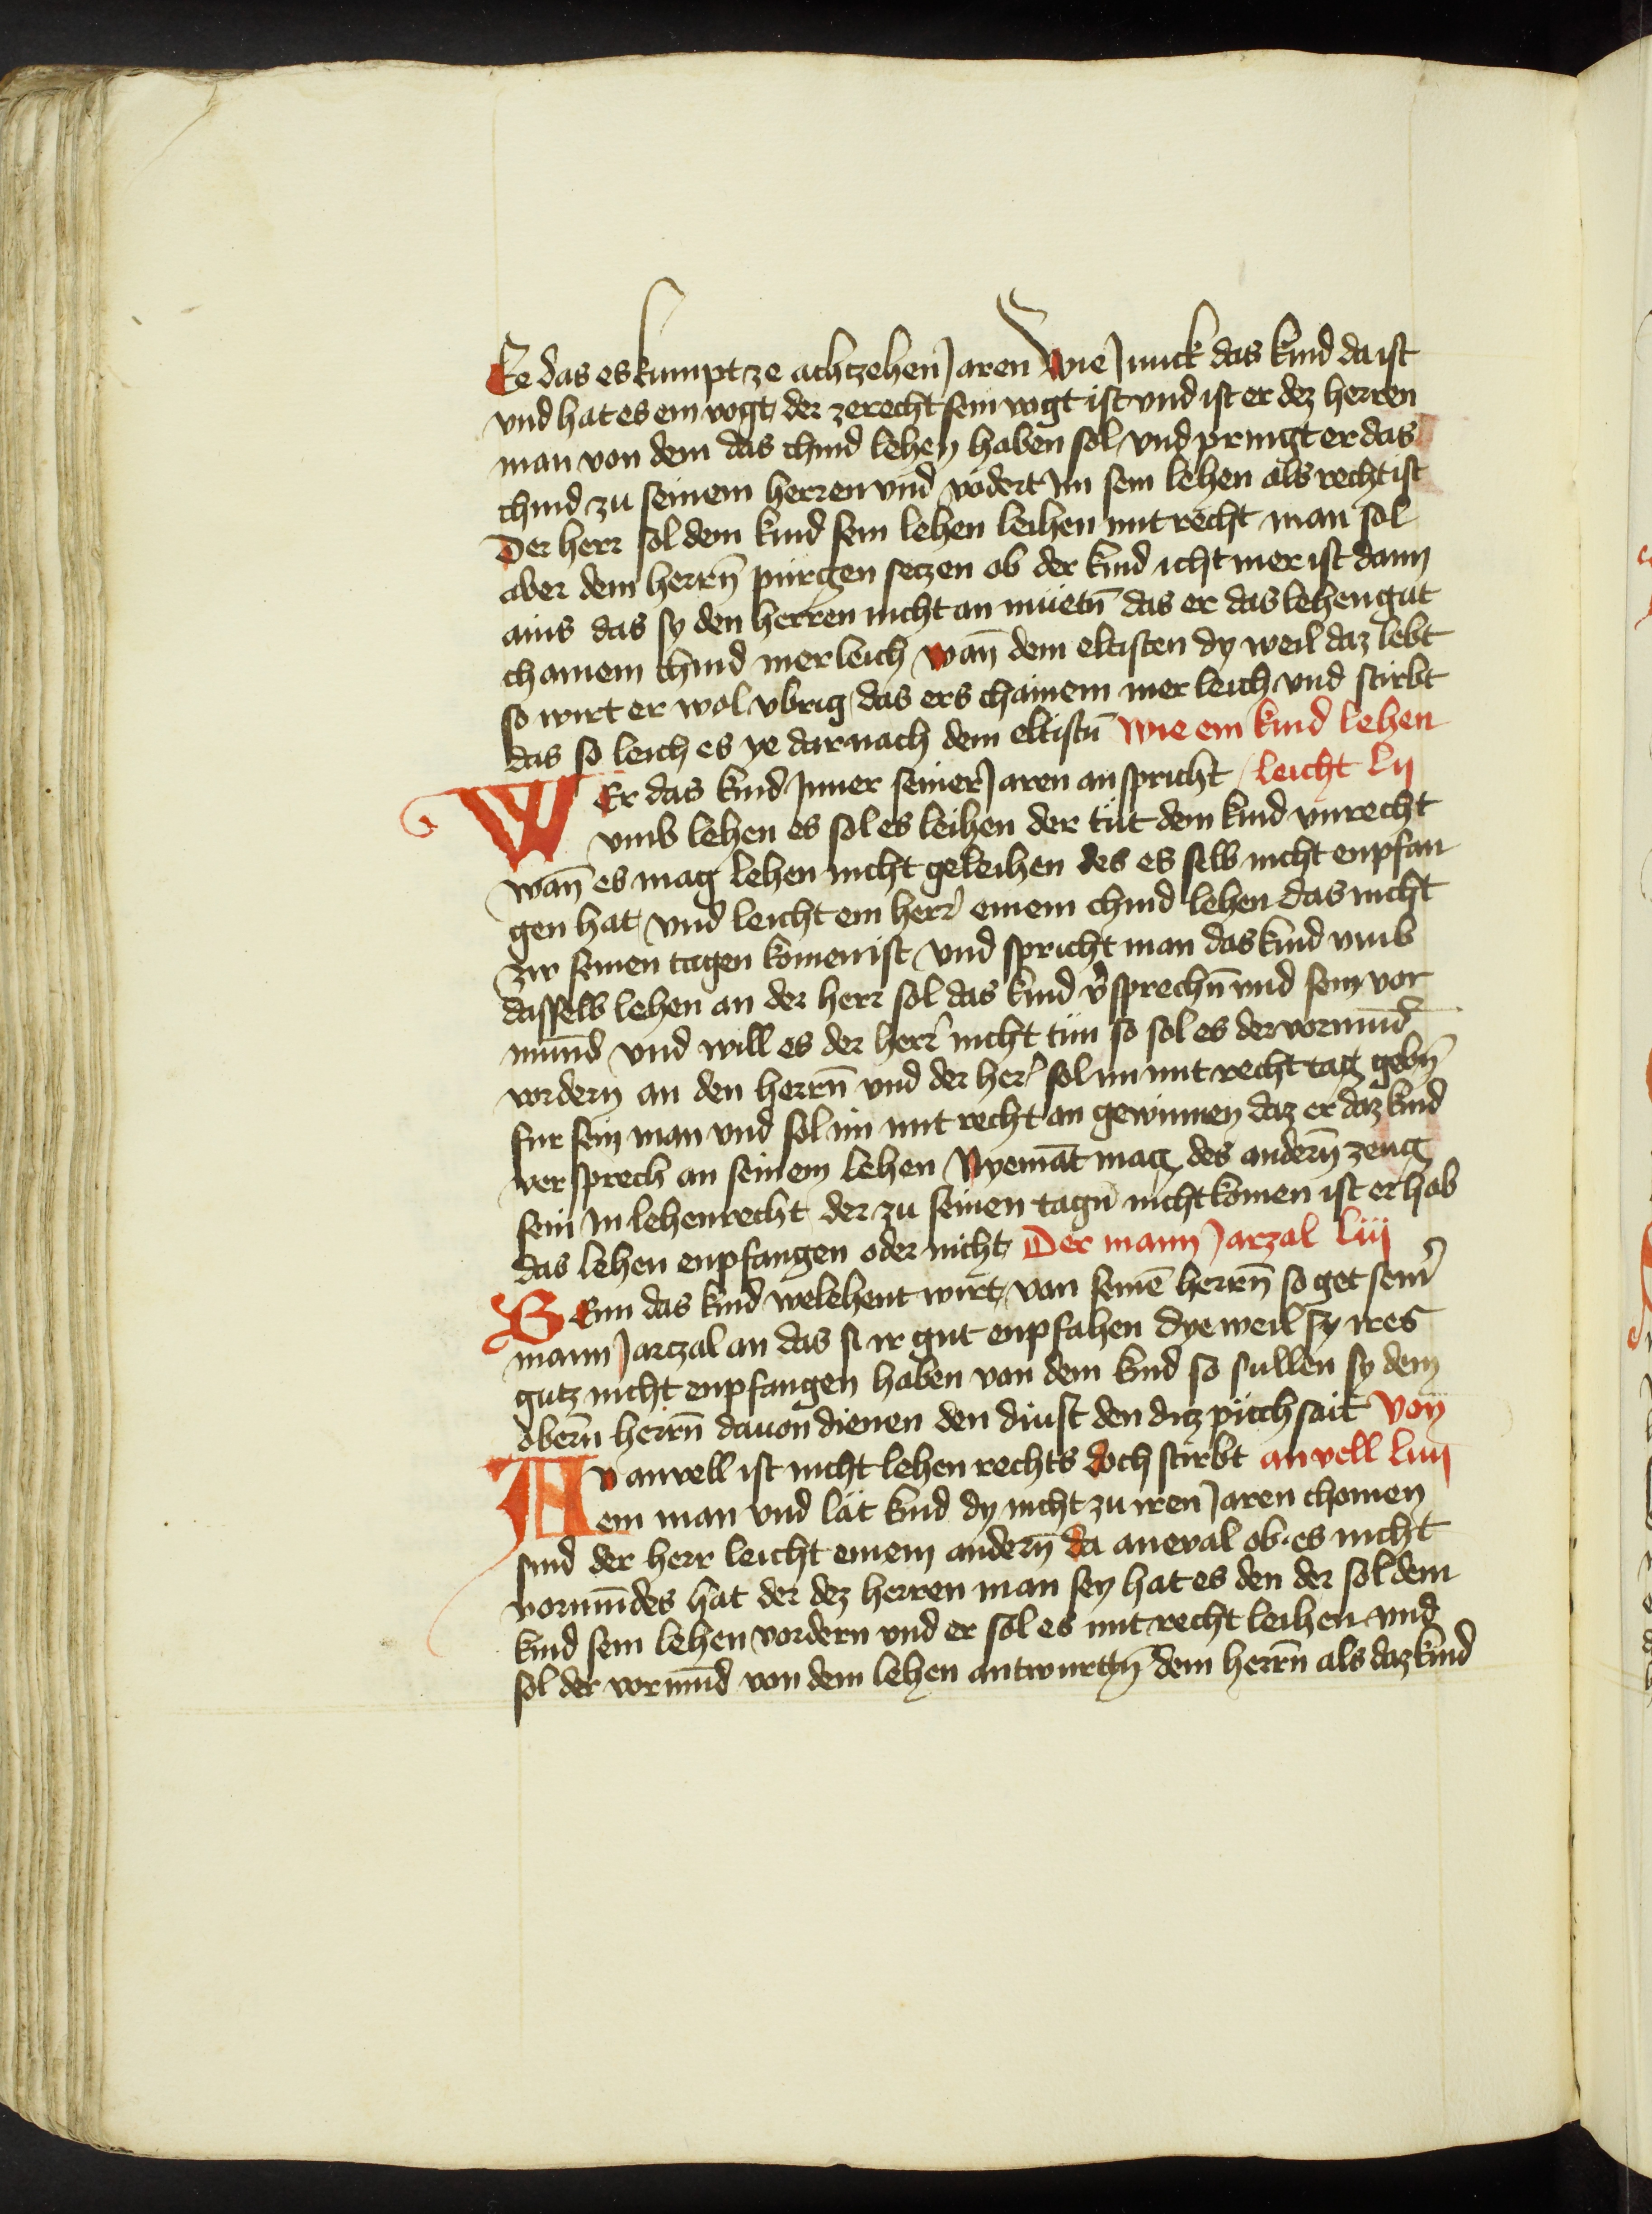 Ee das es kumpt ze achtzehen Jaren Wie Junck das kind da ist
vnd hat es ein vogt der zerecht sein vogt ist vnd ist er dez herren
man von dem das chind lehen haben sol vnd pringt er das
chind zu seinem herren vnd vodert im sein lehen als recht ist
Der herr sol dem kind sein lehen leihen mit recht man sol
aber dem herrn̄ pürgen setzen ob der kind icht mer ist dann
ains das sy den herren nicht an müetn̄ das er das lehengut
chainem chind mer leich wan̄ dem eltisten dy weil daz lebt
so wirt er wol vbrig das ers chainem mer leich vnd stirbt
das so leich es ye darnach dem eltistn̄ Wie ein kind lehen
WEr das kind Inner seiner Jaren an spricht leicht lij
vmb lehen es sol es leihen der tüt dem kind vnrecht
wan̄ es mag lehen nicht geleihen des es selb nicht enpfan
gen hat vnd leicht ein herr einem chind lehen das nicht
zw seinen tagen komen ist vnd spricht man das kind vmb
dasselb lehen an der herr sol das kind v̄sprechn̄ vnd sein vor
mund vnd will es der herr nicht tün so sol es der vormūd
vordern an den herrn̄ vnd der her sol im mit recht tag gebn̄
fur sein man vnd sol im mit recht an gewinnen daz er daz kind
versprech an seinem lehen Nyemāt mag des andern̄ zeug
sein In lehenrecht der zu seinen tagn̄ nicht komen ist er hab
das lehen enpfangen oder nicht Der mann Jarzal liij
SEnn das kind welehent wirt von seinē herrn̄ so get seiner
mann Jarczal an das si ir gut enpfahen dye weil sy ires
gutz nicht enpfangen haben von dem kind so sullen sy dem
obern̄ herrn̄ dauon dienen den dinst den ditz püch sait Von
AN anvell ist nicht lehen rechts doch stirbt anvell liiij
ein man vnd lät kind dy nicht zu iren Jaren chomen
sind der herr leicht einem andern̄ da aneval ob es nicht
vormūdes hat der dez herren man sey hat es den der sol dem
kind sein lehen vordern vnd er sol es mit recht leihen vnd
sol der vormūd von dem lehen antwurttn̄ dem herrn̄ als daz kind